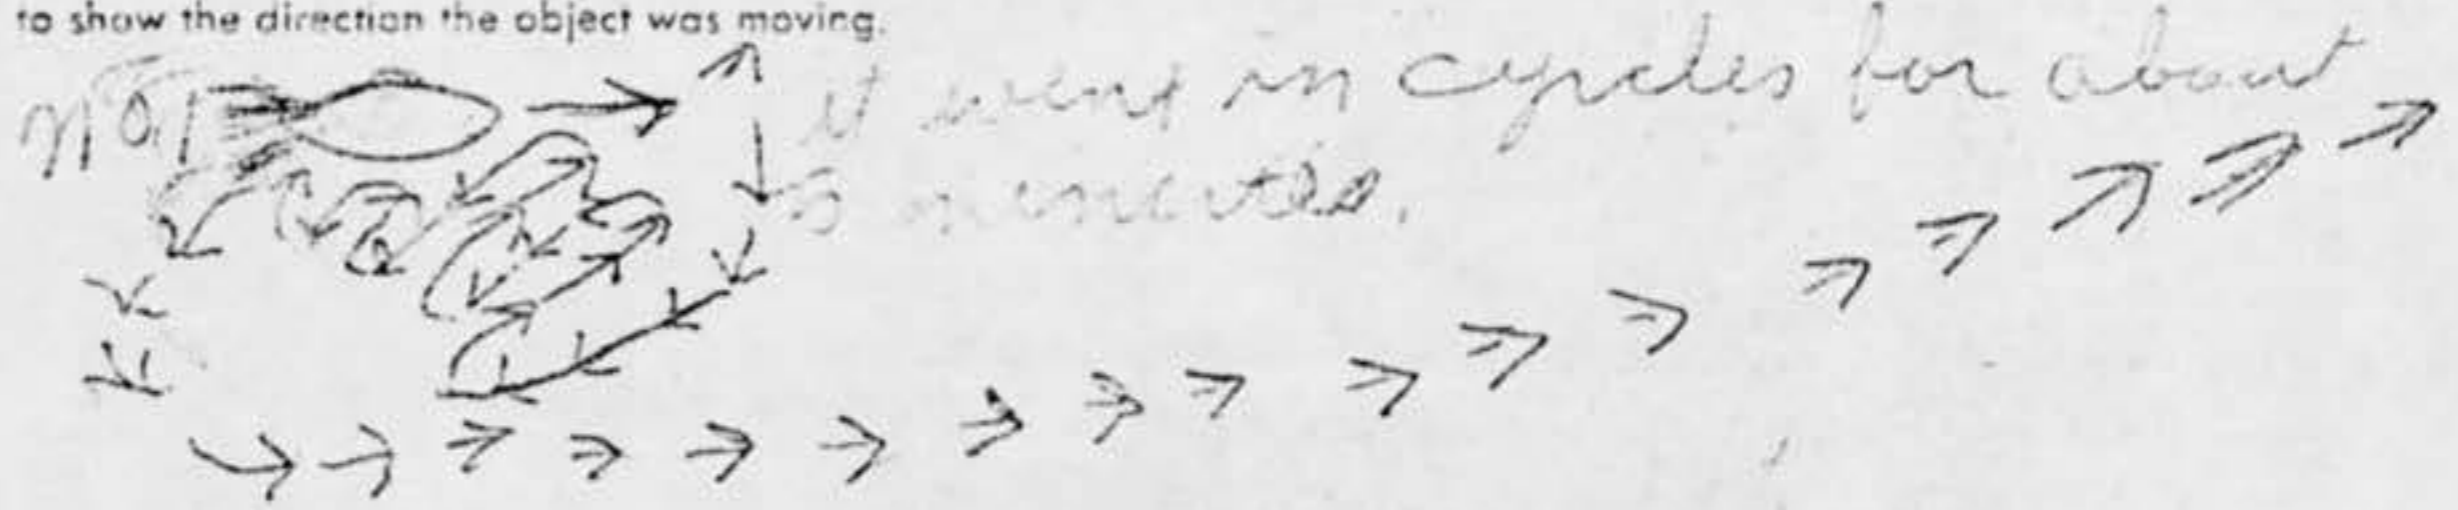 to show the direction the object was moving.
it went in cycles for about
minutes.